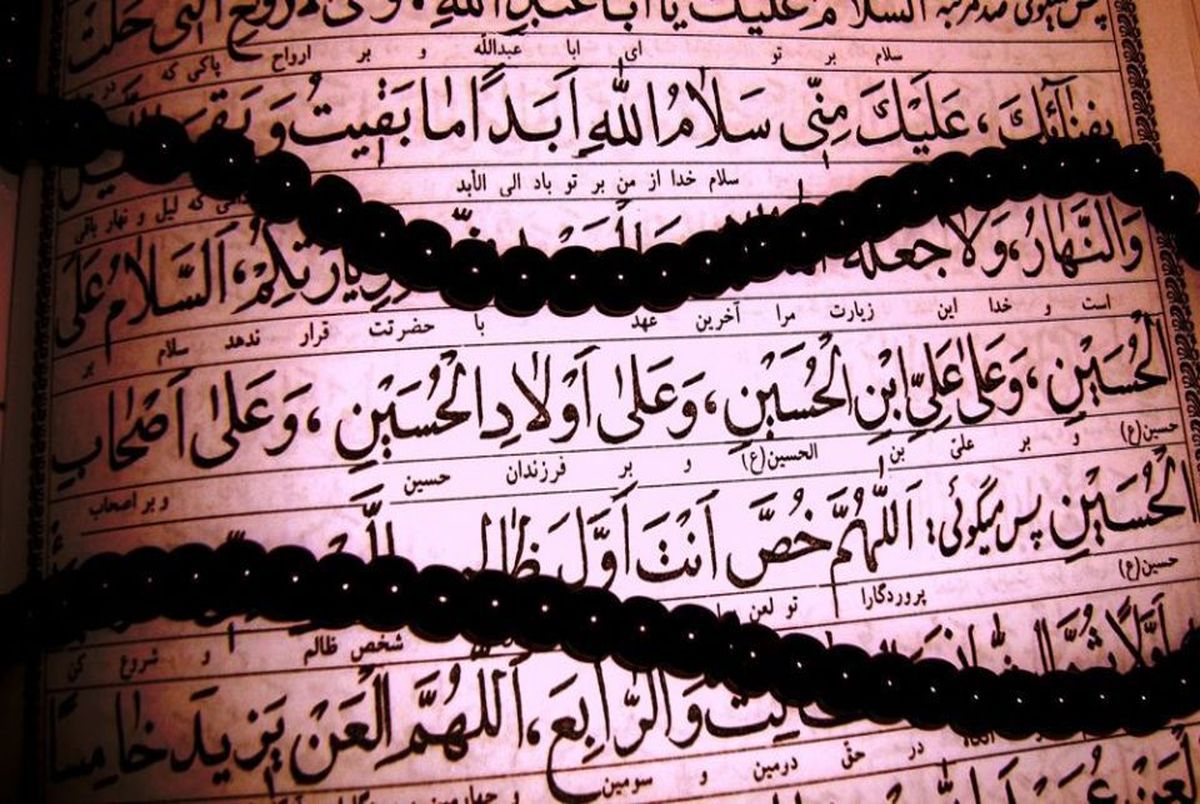 السَّلامُ عَلَيْكَ يا اَبا عَبْدِ اللهِ، وَعَلَى الْاَرْواحِ الَّتى حَلَّتْ
سلام بر تو ای ابا عبدالله و بر ارواح پاکی که در
بِفِنٰائِكَ، عَلَيْكَ مِنّى سَلٰامُ اللهِ اَبَداً مٰا بَقيتُ وَ بَقِىَ
سلام خدا از من بر تو باد الی الأبد که لیل و نهار باقی
وَالنَّهٰارُ، وَلٰا جَعَلَهُ زِيٰارَتِكُمْ، اَلسَّلٰامُ عَلَى
است و خدا این زیارت مرا آخرین عهد با حضرتت قرار ندهد سلام بر
الْحُسَيْنِ، وَعَلٰى عَلِىِّ ابْنِ الْحُسَيْنِ، وَعَلٰى اَوْلٰادِ الْحُسَيْنِ، وَعَلٰى اَصْحٰابِ
حسین(ع) و بر علیّ بن الحسین(ع) و بر فرزندان حسین و بر اصحاب
الْحُسَيْنِ پس میگوئی: اَللّٰهُمَّ خُصَّ اَنْتَ اَوَّلَ ظٰالِمٍ
حسین(ع) پروردگارا تو لعن شخص ظالم و شروع کن
اَوَّلاً ثُمَّ وَالرّٰابِعَ، اَللّٰهُمَّ الْعَنْ يَزيدَ خٰامِساً
در حقّ دومین و سومین و چهارمین